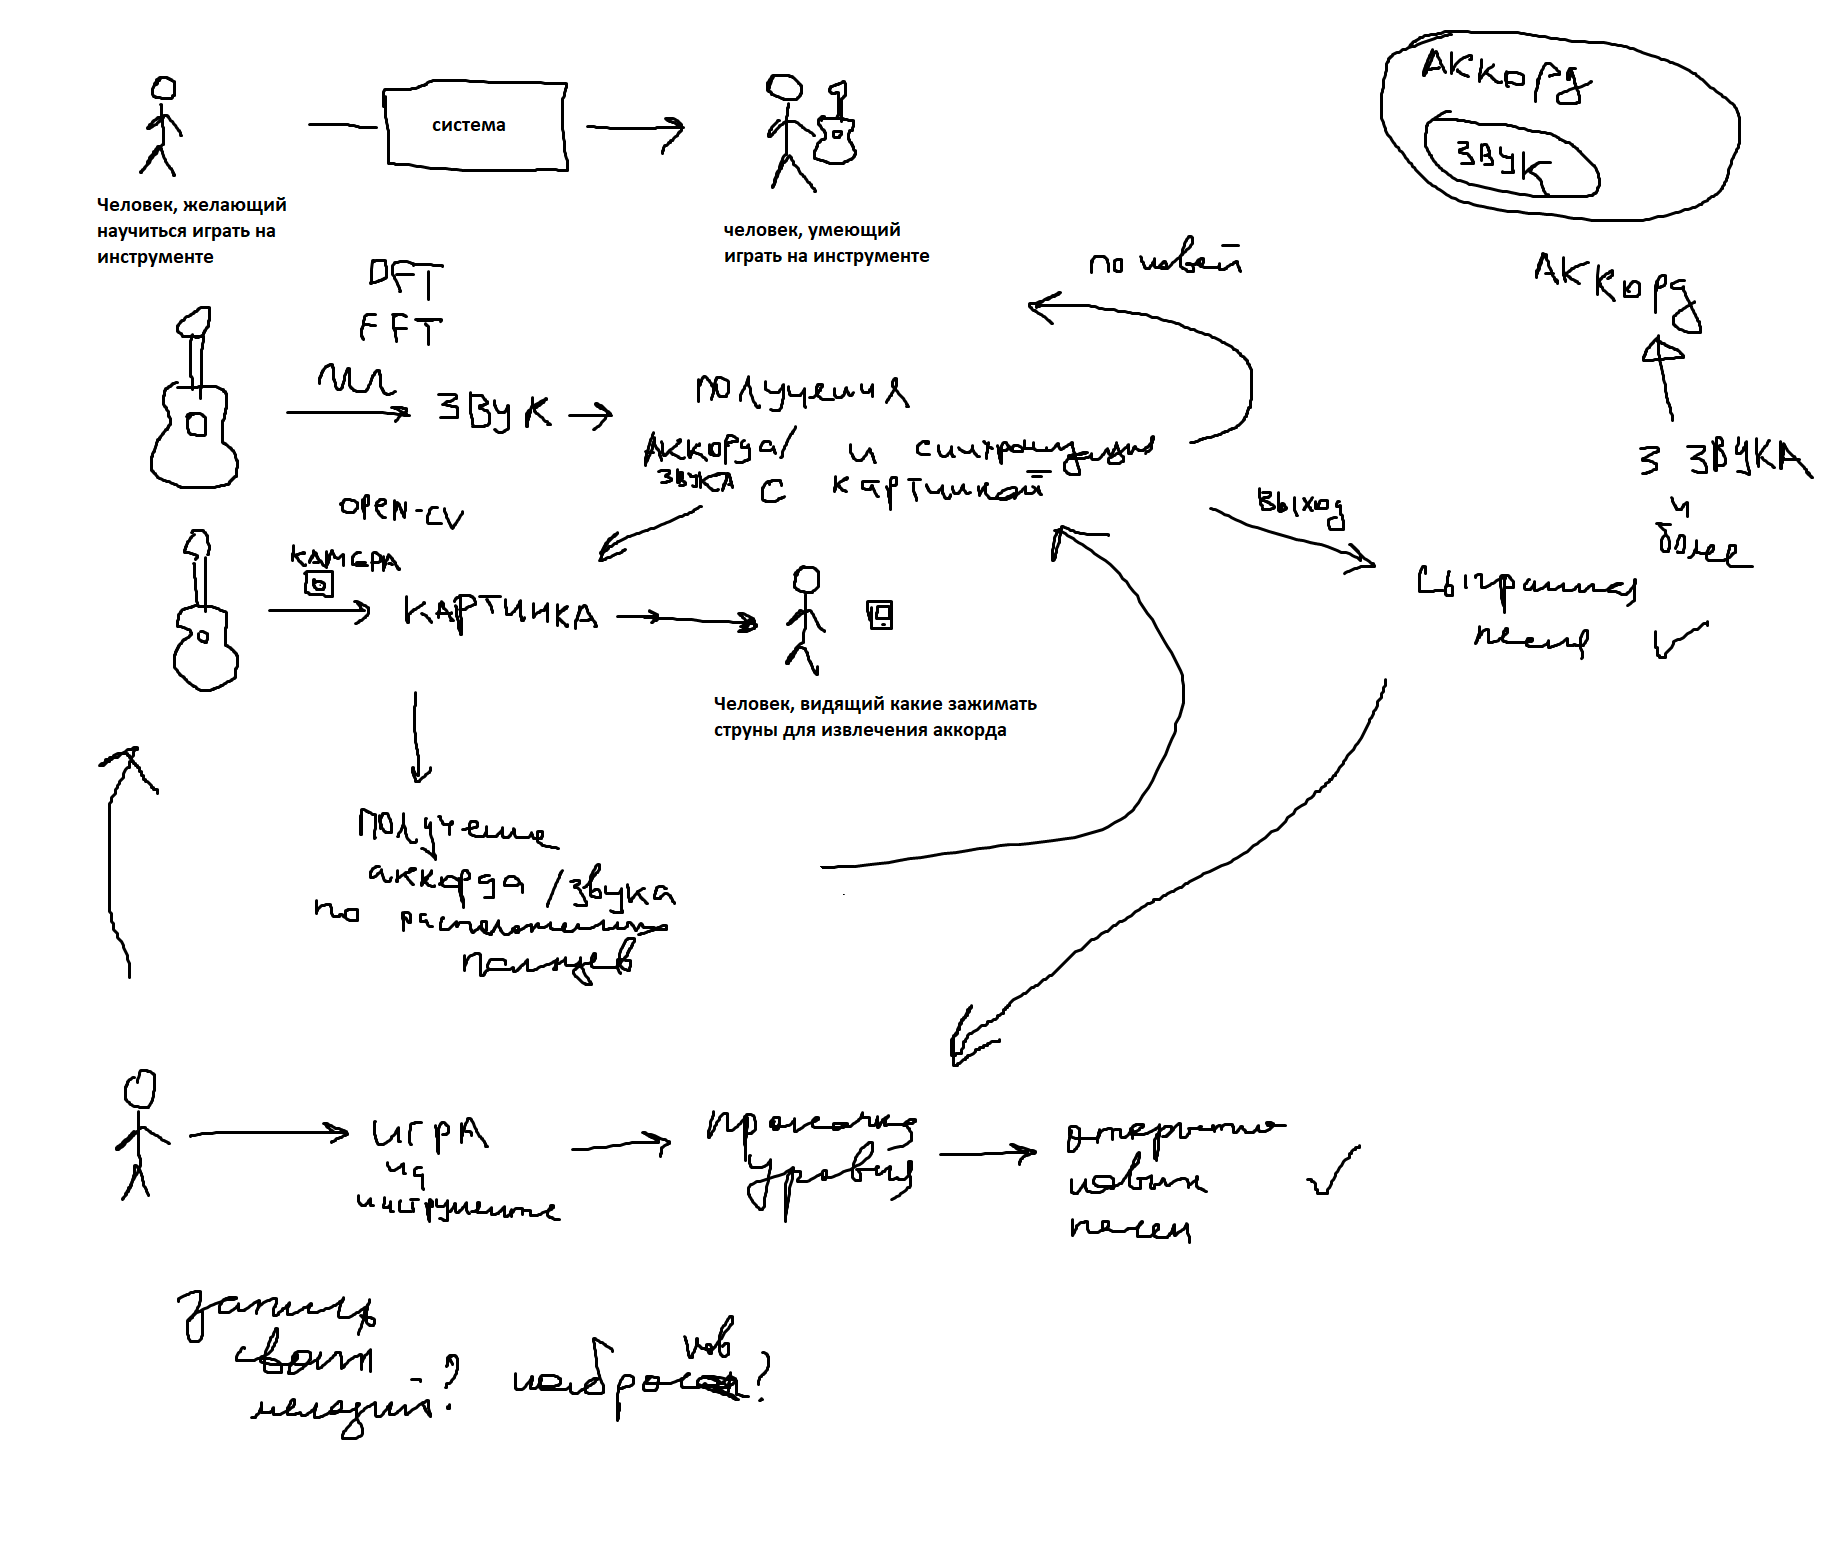 система
Человек, желающий
научиться играть на
инструменте
человек, умеющий
играть на инструменте
АККорд
ЗВУК
АККорд
3 ЗВУКА
и
более
DFT
FFT
ЗВУК
получения
АККорда/
ЗВУКА
и синхронизация
с картинкой
по новой
выход
Сыгранная
песня
OPEN-CV
КАМЕРА
КАРТИНКА
Человек, видящий какие зажимать
струны для извлечения аккорда
Получение
аккорда/звука
по расположению
пальцев
ИГРА
на
инструменте
прокачка
уровня
открытие
новых
песен
запись
своих
мелодий?
набросков?